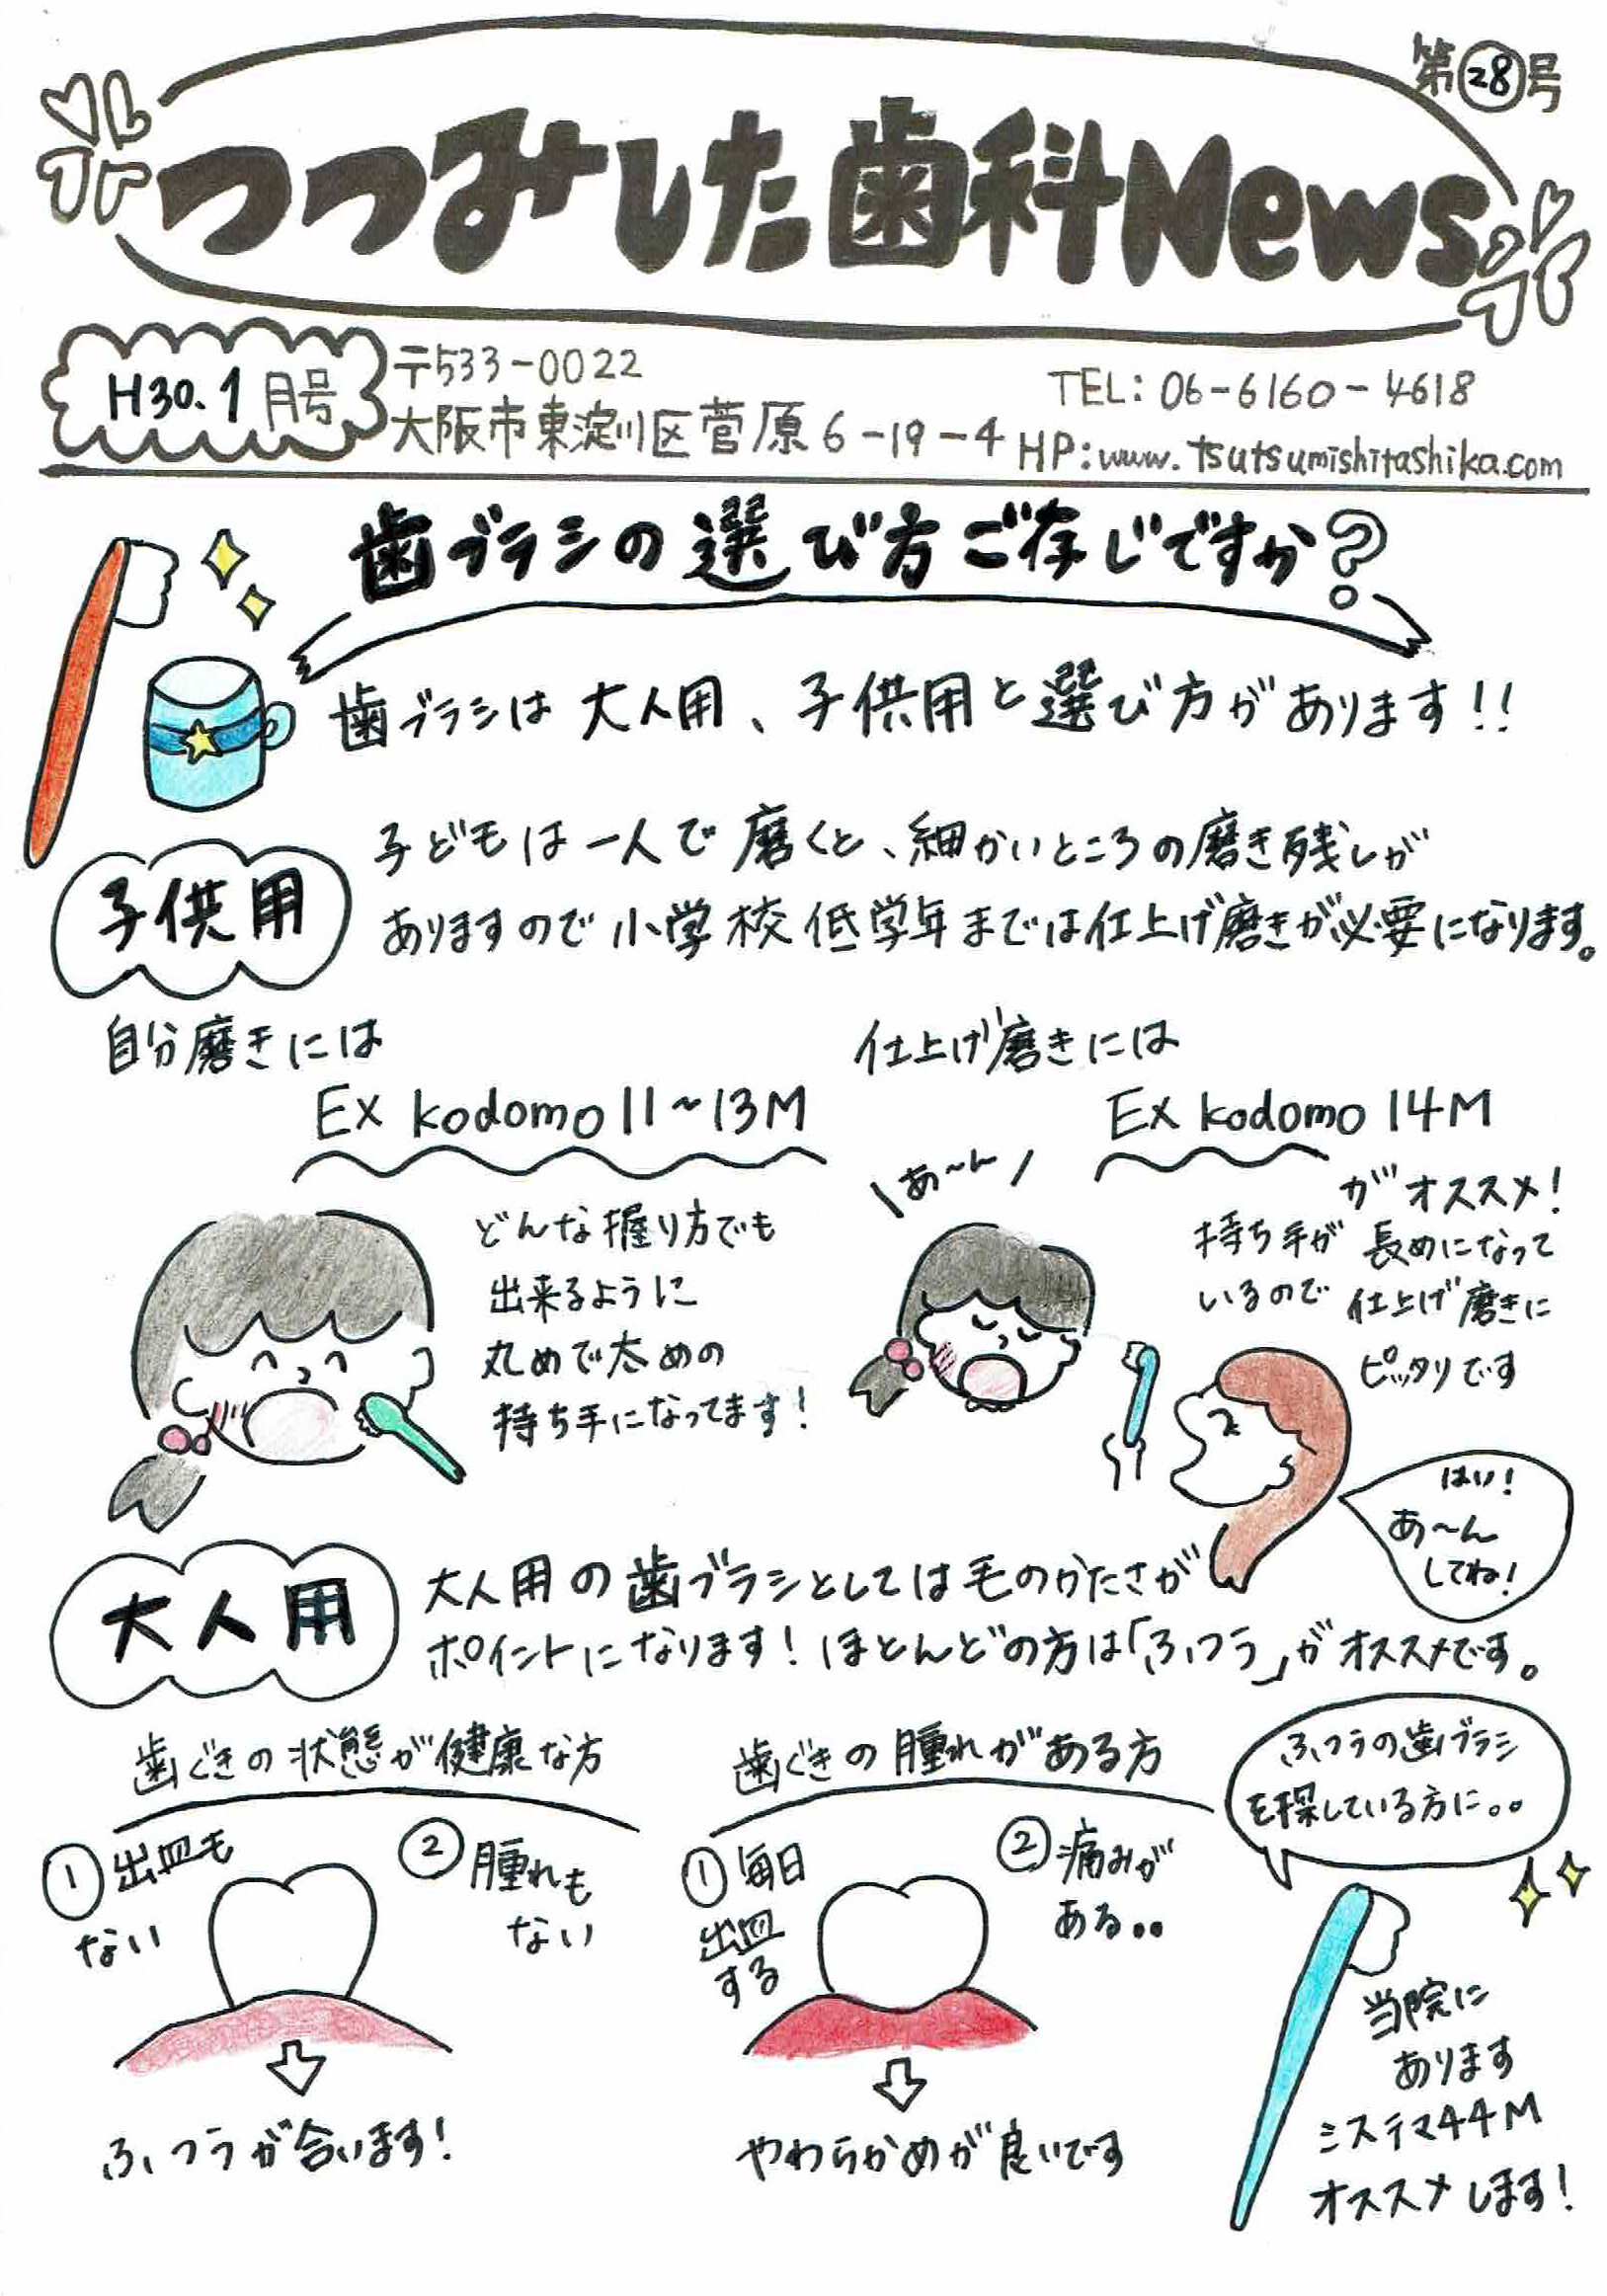 第㉘号
つつみした歯科News
H30.1月号
〒533-0022
大阪市東淀川区菅原6-19-4
TEL: 06-6160-4618
HP: www.tsutsumishitashika.com
歯ブラシの選び方ご存じですか?
歯ブラシは大人用、子供用と選び方があります!!
子供用
子どもは一人で磨くと、細かいところの磨き残しが
ありますので小学校低学年までは仕上げ磨きが必要になります。
自分磨きには
EX kodomo 11~13M
どんな握り方でも
出来るように
丸めで太めの
持ち手になってます!
仕上げ磨きには
EX kodomo 14M
がオススメ!
\あ~ん/
持ち手が長めになって
いるので仕上げ磨きに
ピッタリです
はい!
あ~ん
してね!
大人用
大人用の歯ブラシとしては毛のかたさが
ポイントになります!ほとんどの方は「ふつう」がオススメです。
歯ぐきの状態が健康な方
①出血も
ない
②腫れも
ない
ふつうが合います!
歯ぐきの腫れがある方
①毎日
出血
する
②痛みが
ある。。
やわらかめが良いです
ふつうの歯ブラシ
を探している方に。。
当院に
あります
システマ44M
オススメします!